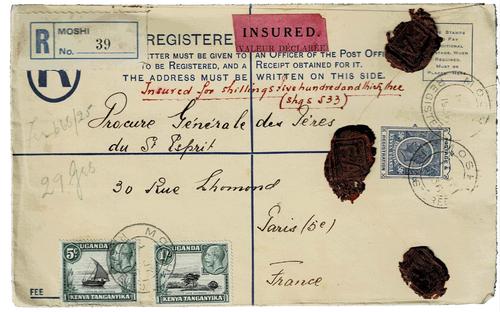 R MOSHI
No. 39
REGISTERE
INSURED.
(VALEUR DÉCLARÉE)
ETTER MUST BE GIVEN TO AN OFFICER OF THE POST OFFI
TO BE REGISTERED, AND A RECEIPT OBTAINED FOR IT.
THE ADDRESS MUST BE WRITTEN ON THIS SIDE.
R
STAMPS
PAY
MUST BE
PLACED HERE
Insured for shillings five hundred and thirty three
(shgs 533)
Procure Générale des Pères
du St Esprit
30 Rue Lhomond
Paris (5e)
France
29 gs
REGISTRATION
POSTAGE &
MOSHI
5/-
UGANDA
KENYA TANGANYIKA
1/-
UGANDA
KENYA TANGANYIKA
FEE